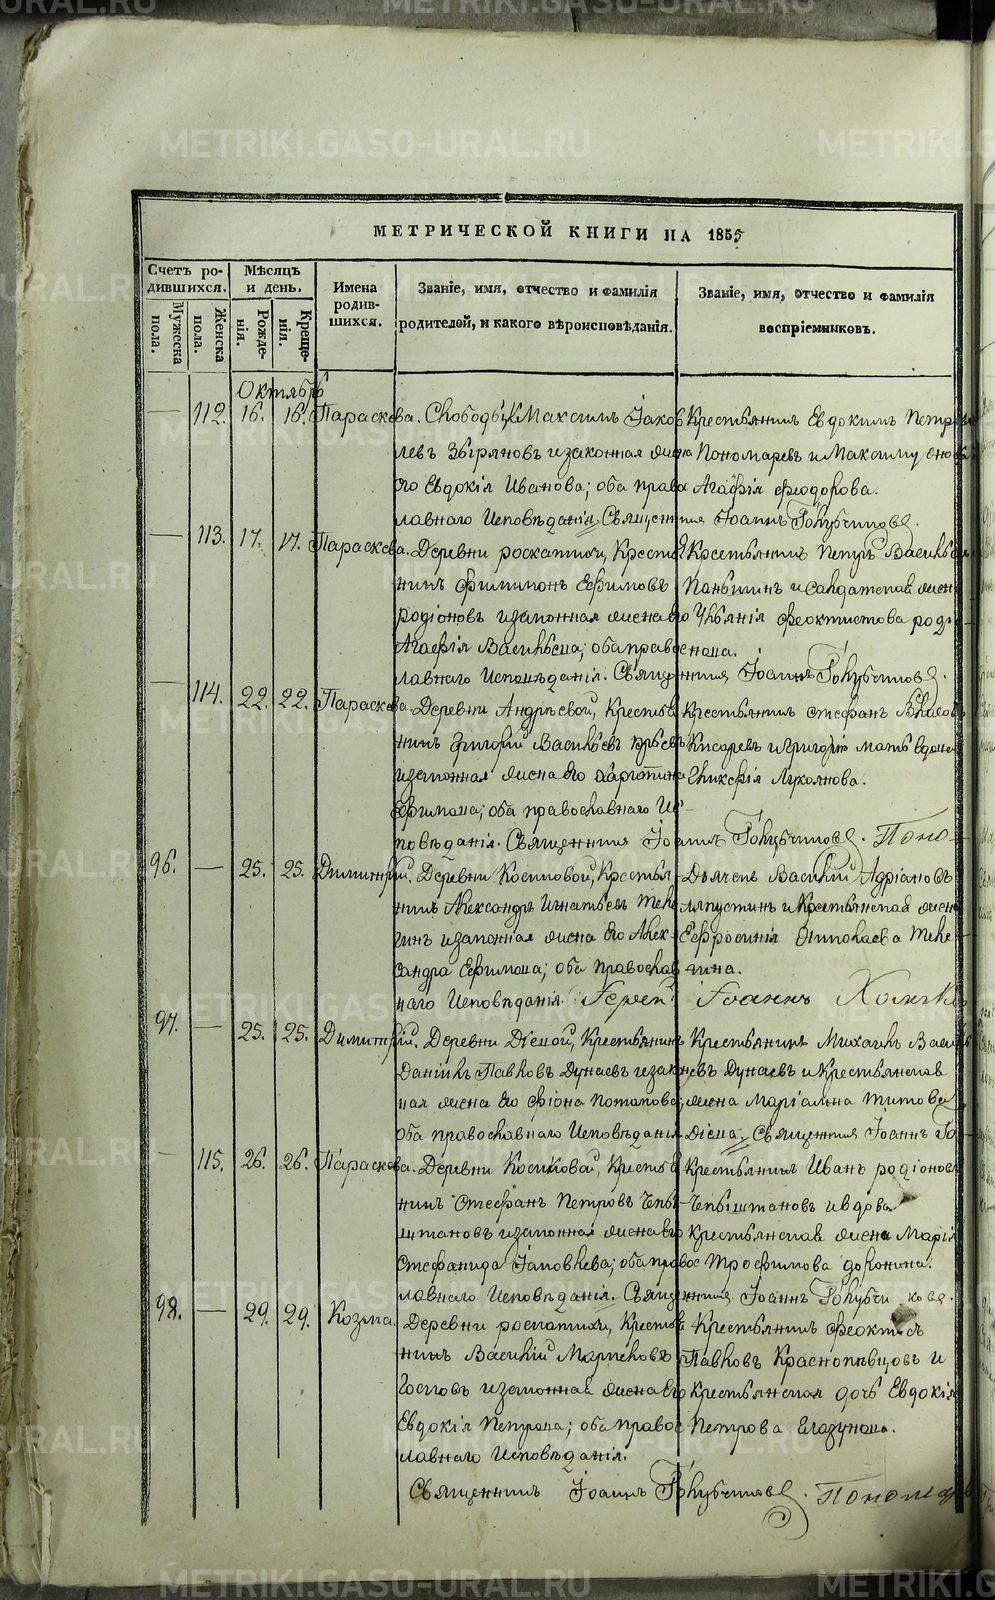 METRIKI.GASO-URAL.RU
МЕТРИЧЕСКОЙ КНИГИ НА 1855
Счетъ ро-
дившихся.
Мужеска
пола.
Женска
пола.
Мѣсяцъ
и день.
Рожде-
нія.
Креще-
нія.
Имена
родив-
шихся.
Званіе, имя, отчество и фамилія
родителей, и какого вѣроисповѣданія.
Званіе, имя, отчество и фамилія
воспріемниковъ.
Октябрь
— 112. 16. 16. Параскева.
Максимъ Іаков
левъ и законная жена
его Евдокія Иванова; оба правос
лавнаго Исповѣданія. Священникъ Іоаннъ Голубчиковъ.
Крестьянинъ Евдокимъ Петровъ
Пономаревъ и
Агафія Феодорова.
— 113. 17. 17. Параскева.
Деревни Крестья
нинъ Филимонъ Ефимовъ
Родіоновъ и законная жена его
Агафія Васильева; оба правос
лавнаго Исповѣданія. Священникъ Іоаннъ Голубчиковъ.
Крестьянинъ Петръ Васильевъ
Паньшинъ и Солдатская жена
Феоктистова Роді
онова.
— 114. 22. 22. Параскева.
Деревни Андреевой, Крестья
нинъ Григорій Васильевъ
и законная жена его Харитина
Ефимова; оба православнаго Ис-
повѣданія. Священникъ Іоаннъ Голубчиковъ. Поно-
Крестьянинъ Стефанъ Власовъ
Кисаревъ и Григорія мать вдова
Гликерія Лукоянова.
96. — 25. 25. Димитрій.
Деревни Косиковой, Крестья-
нинъ Александръ Игнатьевъ Теле
гинъ и законная жена его Алек-
сандра Ефимова; оба Православ
наго Исповѣданія. Іерей Іоаннъ
Дьячекъ Василій Адріановъ
Ляпустинъ и Крестьянская жена
Ефросинія Николаева Теле-
гина.
97. — 25. 25. Димитрій.
Деревни Діевой, Крестьянинъ
Даніилъ Павловъ Дунаевъ и закон
ная жена его Фіона Потапова;
оба православнаго Исповѣданія.
Крестьянинъ Михаилъ Василь
евъ Дунаевъ и Крестьянская
жена Маріамна Титова
Діева. Священникъ Іоаннъ Го-
— 115. 26. 26. Параскева.
Деревни Косиковой, Крестья
нинъ Стефанъ Петровъ Чебы-
штановъ и законная жена его
Стефанида Іаковлева; оба правос
лавнаго Исповѣданія. Священникъ Іоаннъ Голубчиковъ.
Крестьянинъ Иванъ Родіоновъ
Чебыштановъ и вдова
Крестьянская жена Марія
Трофимова Доронина.
98. — 29. 29. Козма.
Деревни Роскатихи, Крестья
нинъ Василій Маркеловъ
Госковъ и законная жена его
Евдокія Петрова; оба правос
лавнаго Исповѣданія.
Крестьянинъ Феоктистъ
Павловъ Краснопѣвцовъ и
Крестьянская дочь Евдокія
Петрова Глазунова.
Священникъ Іоаннъ Голубчиковъ. Пономарь